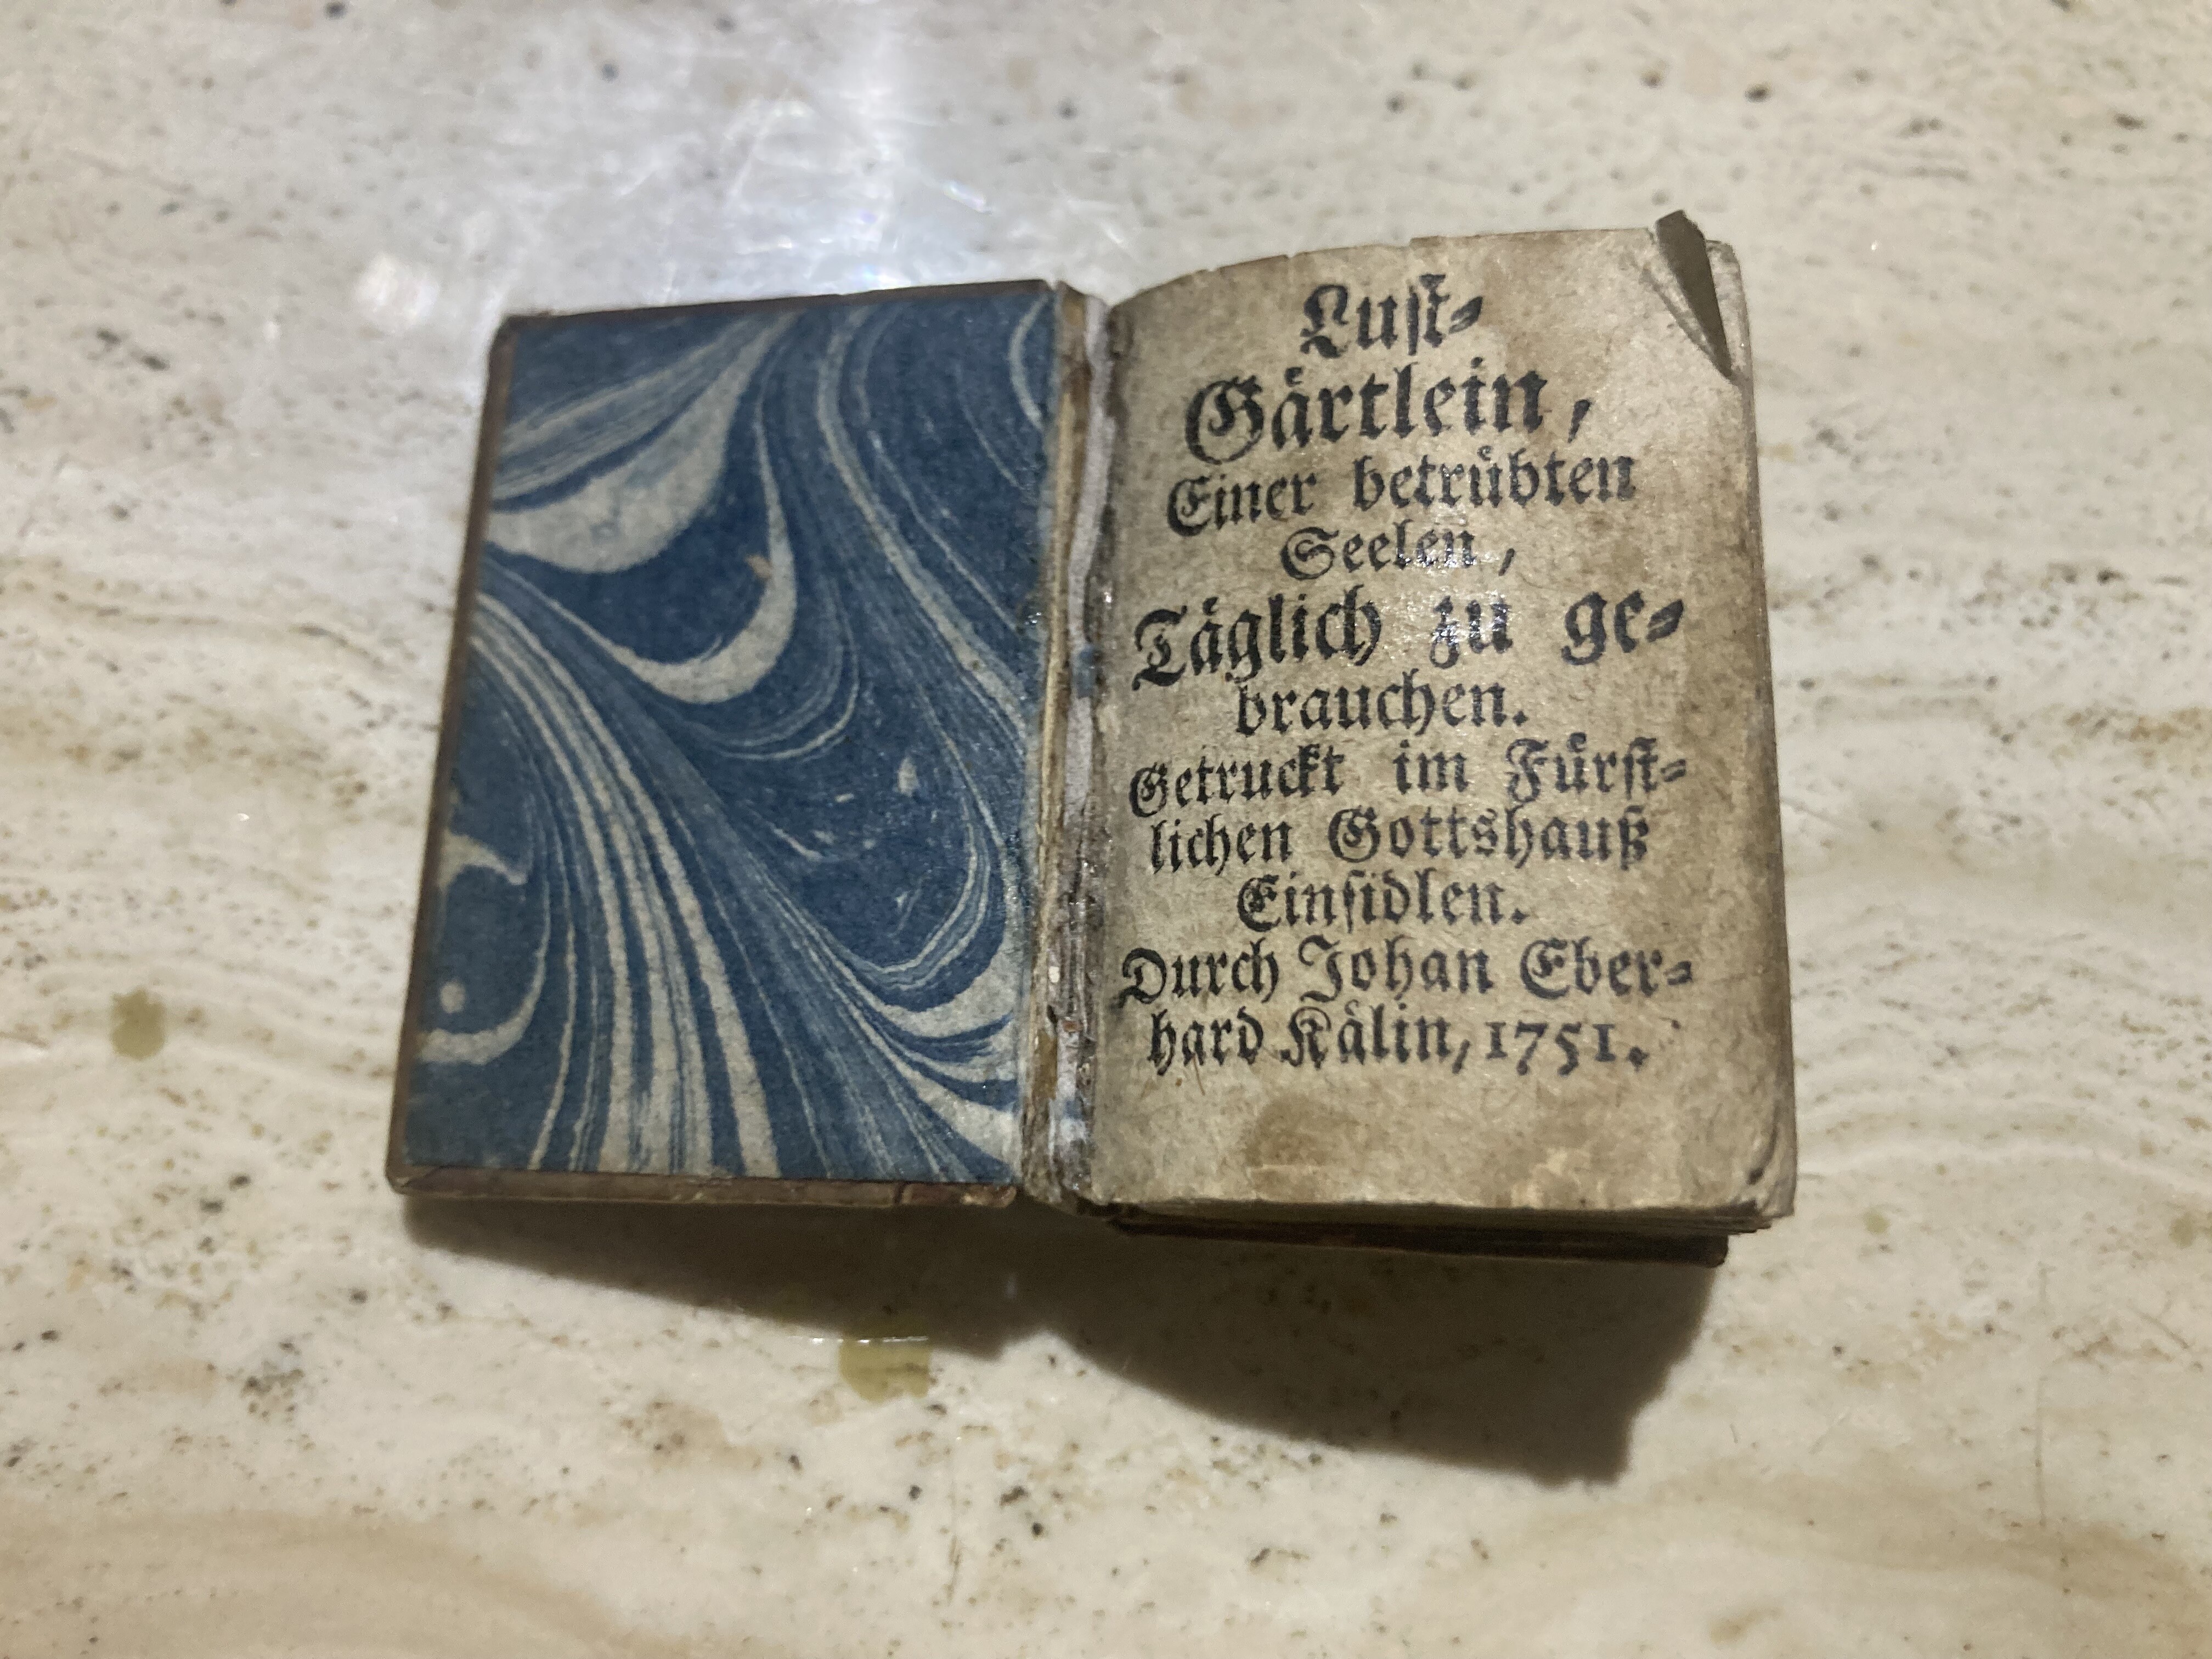 Luſt⸗
Gaͤrtlein,
Einer betruͤbten
Seelen,
Taͤglich zu ge⸗
brauchen.
Getruckt im Fuͤrſt⸗
lichen Gottshauß
Einſidlen.
Durch Johan Eber⸗
hard Kaͤlin, 1751.